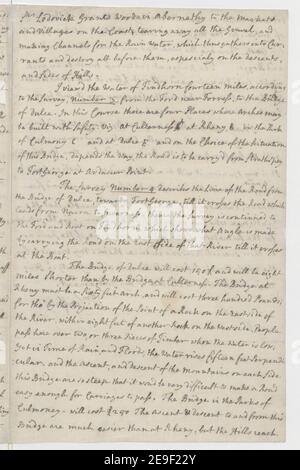 Mr. Lodovick Grants Works in Abernethy to the markets
and Villages on the Coast, leaving away all the Gravel, and
making Channels for the Rain Water, which thus gathers into Cur-
rants and destroy all before them, especially on the descents
and sides of Hills.
I view'd the Water of Findhorn fourteen miles, according
to the Survey, Number 3, from the Ford near Forress, to the Bridge
of Dulce. In this Course there are four Places where Arches may
be built with Safety, viz. at Cullerness at Rhany in the Rock
of Culmony and at Dulce and on the Choice of the situation
of this Bridge, depends the way the Road is to be carry'd from
Fort George at Ardersier Point.
The Survey Number 4 describes the Line of the Road from
the Bridge of Dulce, toward Fort George, till it cross the Road which
leads from Nairn to then the Survey is continued to
the Ford and Boat on to shew what Angle is made
by carrying the Road on the East side of that River till it cross
at the Boat.
The Bridge of Dulce will cost 150£ and will be eight
miles shorter than by the Bridge at Cullerness. The Bridge at
Rhany must be a forty feet arch, and will cost three hundred Pounds,
for tho' by the Projection of the Point of a Rock on the East side of
the River, within eight feet of another Rock on the West side, People
pass here over two or three pieces of Timber when the Water is low,
yet in Time of Rain and Flood, the Water rises fifteen feet Perpendi-
cular, and the ascent, and descent of the Mountains on each side
this Bridge are so steep that it would be very difficult to make a Road
easy enough for Carriages to pass. The Bridge in the Parks of
Culmoney will cost £250. The ascent & descent to and from this
Bridge are much easier than at Rhany, but the Hills reach
alamy
Image ID: 2E9F22Y
www.alamy.com